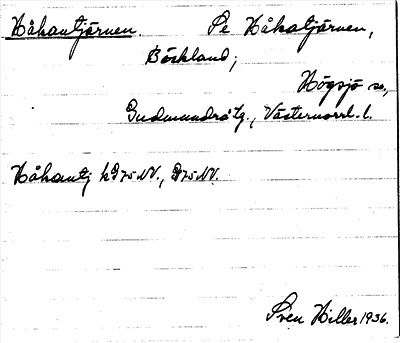 Håkantjärnen. Se Håkatjärnen,
Böckland;
Högsjö sn,
Gudmundråtg., Västernorrl. l.
Håkantj k G75 NV., G75 NV.
Sven Hiller 1936.